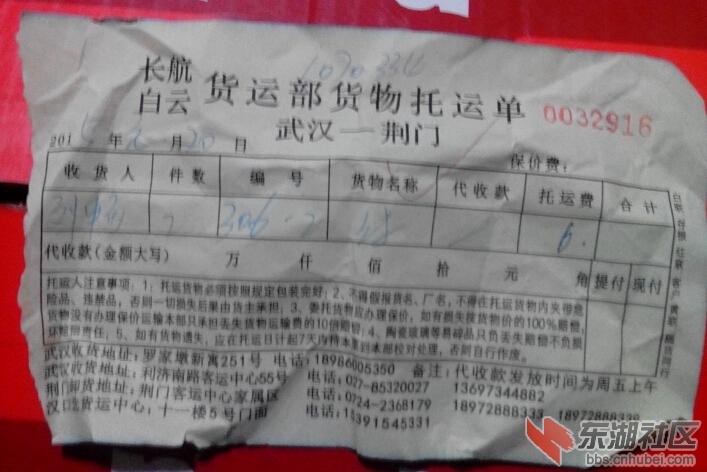 长航
白云 货运部货物托运单 0032916
武汉—荆门
年 月 20 日 保价费:
收货人 件数 编号 货物名称 代收款 托运费 合计
6.
代收款(金额大写) 万 仟 佰 拾 元 角 提付 现付
托运人注意事项:1、托运货物必须按照规定包装完好;2、不得假报货名、厂名,不得在托运货物内夹带危
险品、违禁品,否则一切损失后果由货主承担;3、委托货物应办理保价,如有损失按货物价的100%赔偿,
货物没有办理保价运输本部只承担丢失货物运输费的10倍赔偿;4、陶瓷玻璃等易碎品只负丢失赔偿不负损
坏赔偿责任;5、如有货物遗失,应在托运日计起7天内持本票到本部校对处理,否则自行作废。
武汉收货地址:罗家墩新寓251号 电话:18986005350 备注:代收款发放时间为周五上午
武汉收货地址:利济南路客运中心55号 电话:027-85320027 13697344882
荆门卸货地址:荆门客运中心家属区 电话:0724-2368179 18972888333 18972888339
汉口货运中心:十一楼5号门面 电话:15391545331
东湖社区
bbs.cnhubei.com